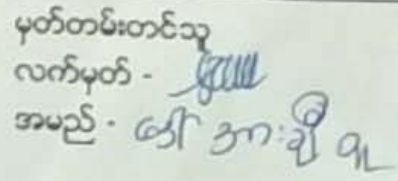 မှတ်တမ်းတင်သူ
လက်မှတ် -
အမည် - ဒေါ် အားချီ